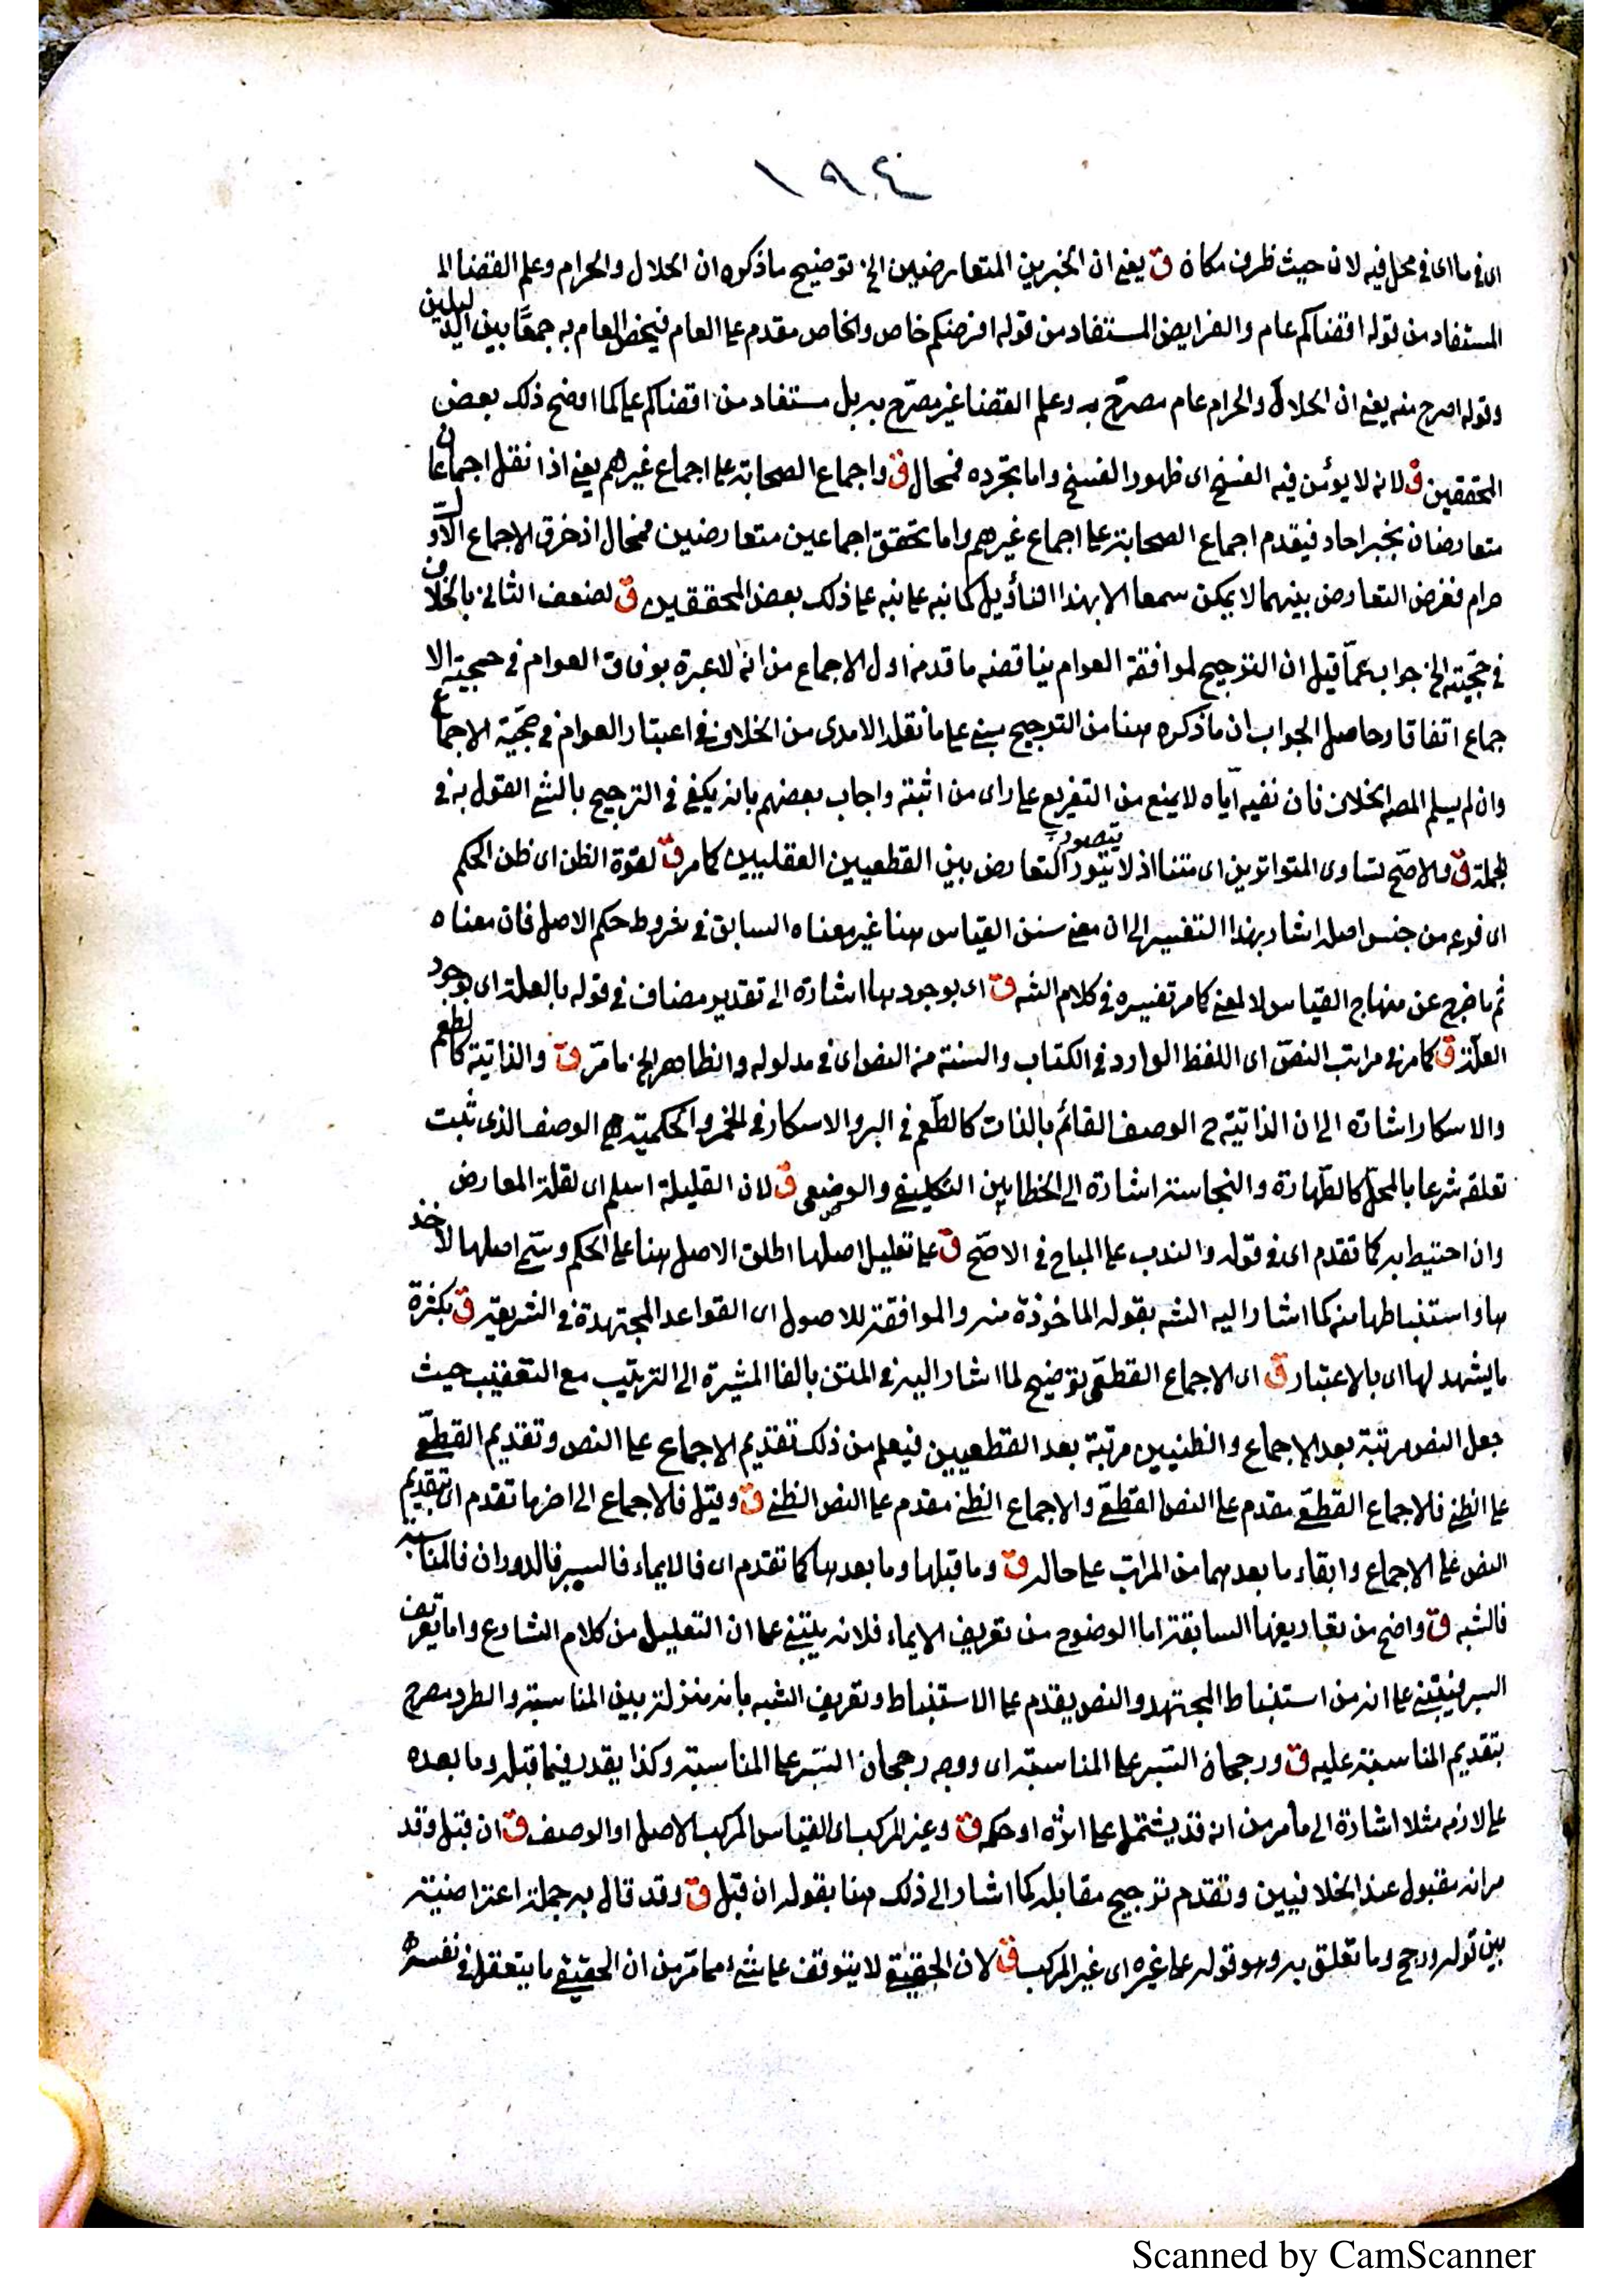 ١٩٤
اى في ما اى في محل فيه لان حيث ظرف مكان ق يعني ان الخبرين المتعارضين الخ توضيح ما ذكره ان الحلال والحرام وعلم القضا الـ
المستفاد من قوله اقضاكم عام والفرايض المستفاد من قوله افرضكم خاص والخاص مقدم على العام فيخص العام به جمعًا بين الدليلين
وقوله اصرح منه يعني ان الحلال والحرام عام مصرّح به وعلم القضا غير مصرّح به بل مستفاد من اقضاكم على كما اوضح ذلك بعض
المحققين ق لانه لا يؤمن فيه الفسخ اى ظهور الفسخ واما تجرده فمحال ق واجماع الصحابة على اجماع غيرهم يعني اذا نقل اجماعان
متعارضان بخبر احاد فيقدم اجماع الصحابة على اجماع غيرهم واما تحقق اجماعين متعارضين فمحال اذ خرق الاجماع الاول
حرام ففرض التعارض بينهما لا يمكن سمعا الا بهذا التأويل كما نبه على ذلك بعض المحققين ق لضعف الثاني بالخلاف
في حجّيته الخ جواب عمّا قيل ان الترجيح لموافقة العوام يناقضه ما قدمه اول الاجماع من انه لا عبرة بوفاق العوام في حجية الا
جماع اتفاقا وحاصل الجواب ان ما ذكره هنا من الترجيح مبني على ما نقله الامدى من الخلاف في اعتبار العوام في حجّية الاجماع
وان لم يسلم المصـ الخلاف فان نفيه اياه لا يمنع من التفريع على راى من اثبته واجاب بعضهم بانه يكفي في الترجيح بالشئ القول به في
الجملة ق والاصح تساوى المتواترين اى متنا اذ لا يتصور التعارض بين القطعيين العقليين كما مر ق لقوة الظن اى ظن الحكم
اى فرعه من جنس اصله اشار بهذا التفسير الى ان معنى سنن القياس هنا غير معناه السابق في شروط حكم الاصل فان معناه
ثم ما خرج عن منهاج القياس لا لمعنى كما مر تفسيره في كلام الشه ق اى بوجودها اشارة الى تقدير مضاف في قوله بالعلة اى بوجود
العلّة ق كما مر في مراتب النصّ اى اللفظ الوارد في الكتاب والسنة من النص اى في مدلوله والظاهر الخ ما مرّ ق والذاتية كالطعم
والاسكار اشارة الى ان الذاتية ح الوصف القائم بالذات كالطّعم في البر والاسكار في الخمر والحكمية هي الوصف الذى ثبت
تعلقه شرعا بالمحلّ كالطّهارة والنجاسة اشارة الى الخطابين التكليفي والوضعي ق لان القليلة اسلم اى لقلة المعارض
وان احتيط به كما تقدم اى في قوله والندب على المباح في الاصّح ق على تعليل اصلها اطلق الاصل هنا على الحكم وسمّى اصلها لاخذ
ها واستنباطها منه كما اشار اليه الشه بقوله الماخوذة منه والموافقة للاصول اى القواعد المجتهدة في الشريعة ق بكثرة
ما يشهد لها اى بالاعتبار ق اى الاجماع القطعّى توضيح لما اشار اليه في المتن بالفا المشيرة الى الترتيب مع التعقيب حيث
جعل النص مرتبة بعد الاجماع والظنيين مرتبة بعد القطعيين فيعلم من ذلك تقديم الاجماع على النص وتقديم القطعّي
على الظني فالاجماع القطعّي مقدم على النص القطعّي والاجماع الظني مقدم على النص الظني ق وقيل فالاجماع الى اخرها تقدم اى تقديم
النص على الاجماع وابقاء ما بعدهما من المراتب على حاله ق وما قبلها وما بعدها كما تقدم اى فالايماء فالسبر فالدوران فالمناسبة
فالشبه ق واضح من تعاريفها السابقة اما الوضوح من تعريف الايماء فلانه يبتني على ان التعليل من كلام الشارع واما تعريف
السبر فيبتني على انه من استنباط المجتهد والنص يقدم على الاستنباط وتعريف الشبه بانه منزلة بين المناسبة والطرد مصرح
بتقديم المناسبة عليه ق ورجحان السّبر على المناسبة اى ووجه رجحان السّبر على المناسبة وكذا يقدر فيما قبله وما بعده
على لازمه مثلا اشارة الى ما مر من انه قد يشتمل على اثره او حكمه ق وغير المركب اى القياس المركب الاصل او الوصف ق ان قبل وقد
مر انه مقبول عند الخلافيين وتقدم ترجيح مقابله كما اشار الى ذلك هنا بقوله ان قبل ق وقد قال به جملة اعتراضية
بين قوله ورجح وما تعلق به وهو قوله على غيره اى غير المركب ق لان الحقيقي لا يتوقف على شئ مما مرّ من ان الحقيقي ما يتعقل في نفسه
Scanned by CamScanner